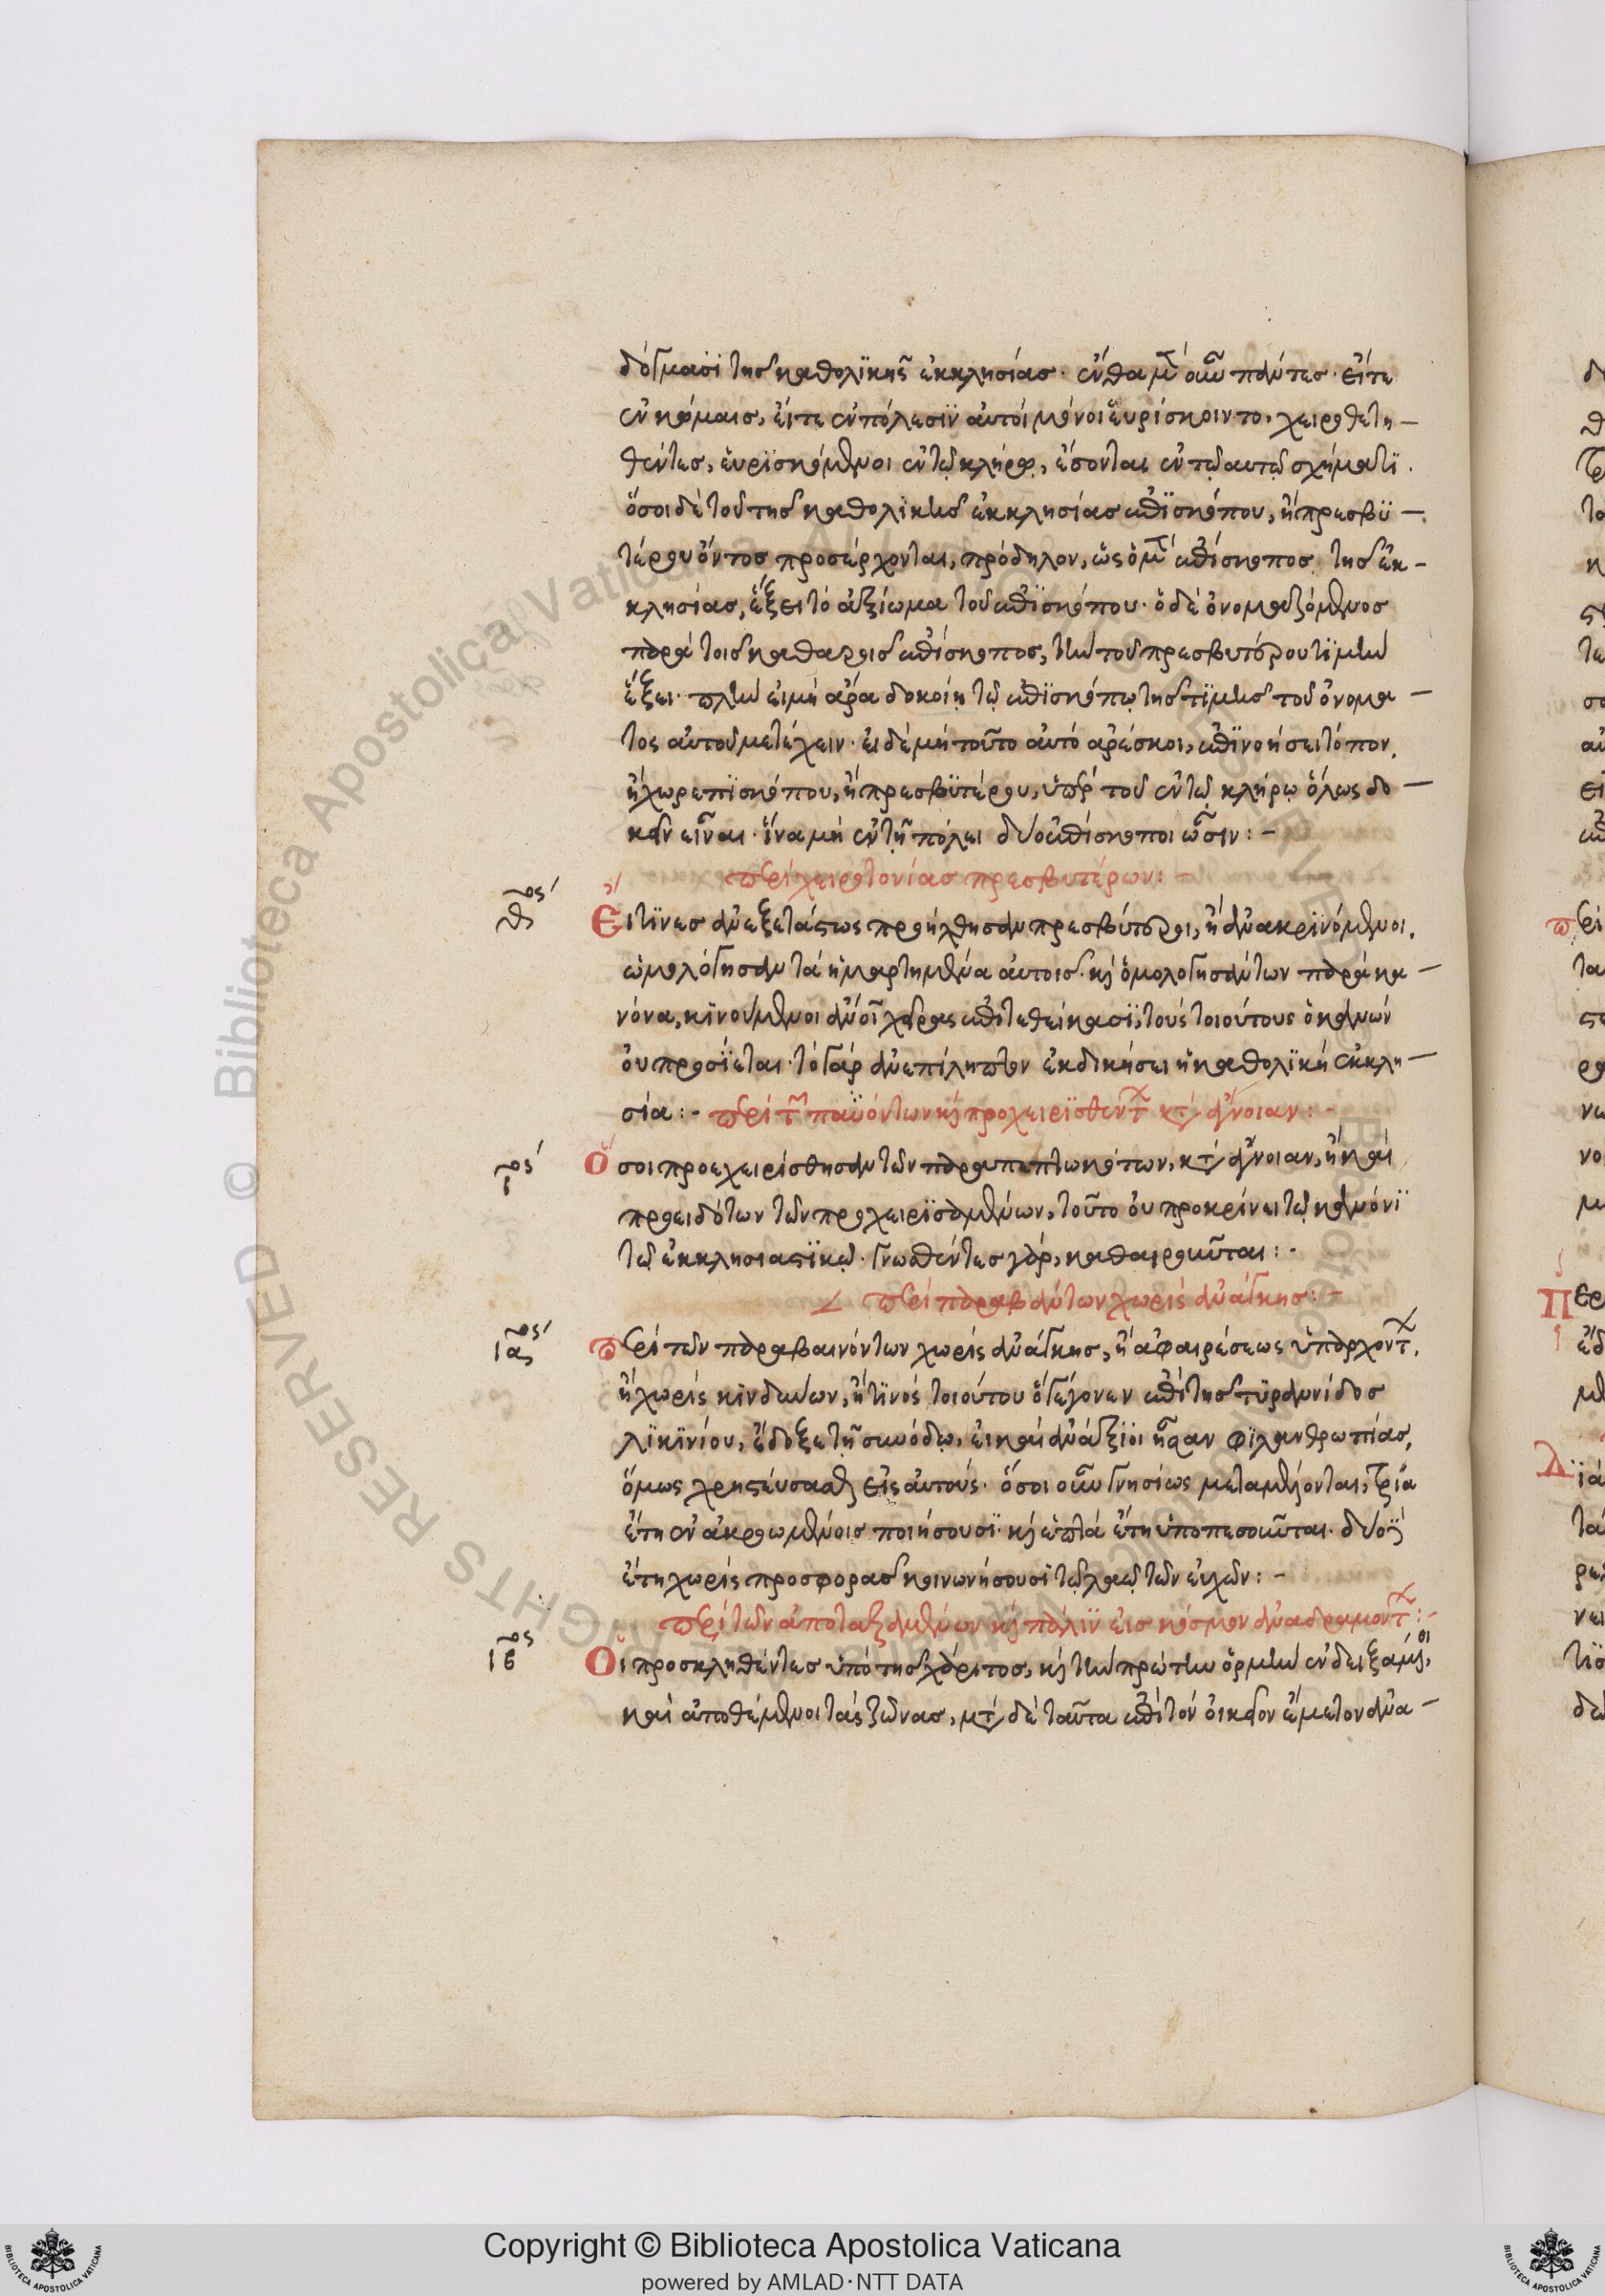 δόγμασϊ τῆς καθολϊκῆς ἐκκλησίας· ἔνθα μὲν οὖν πάντες· εἴτε
ἐν κώμαις, εἴτε ἐν πόλεσϊν αὐτοὶ μόνοι εὑρίσκοιντο, χειροθετη-
θέντες, εὑρϊσκόμενοι ἐν τῷ κλήρῳ, ἔσονται ἐν τῷ αυτῷ σχήματϊ.
ὅσοι δὲ τοῦ της καθολικῆς ἐκκλησίας ἐπϊσκόπου, ἢ πρεσβϋ-
τέρου ὄντος προσέρχονται, πρόδηλον, ὡς ὁ μὲν ἐπίσκοπος της ἐκ-
κλησίας, ἕξει τὸ ἀξίωμα τοῦ ἐπϊσκόπου· ὁ δὲ ὀνομαζόμενος
παρὰ τοις καθαροις ἐπίσκοπος, τὴν τοῦ πρεσβυτέρου τϊμὴν
ἕξει· πλὴν εἰ μὴ ἄρα δοκοίη τῷ ἐπϊσκόπῳ της τϊμῆς τοῦ ὀνόμα-
τος αὐτοῦ μετέχειν· εἰ δὲ μὴ τοῦτο αὐτό ἀρέσκοι, ἐπϊνοήσει τόπον,
ἢ χωρεπϊσκόπου, ἢ πρεσβϋτέρου, ὑπὲρ τοῦ ἐν τῷ κλήρῳ ὅλως δο-
κεῖν εἶναι· ἵνα μὴ ἐν τῆ πόλει δύο ἐπίσκοποι ὦσιν:-
περὶ χειροτονίας πρεσβυτέρων:-
θος Εἴ τϊνες ἀνεξετάστως προήχθησαν πρεσβύτεροι, ἢ ἀνακρϊνόμενοι,
ὡμολόγησαν τὰ ἡμαρτημένα αὐτοις· καὶ ὁμολογησάντων παρὰ κα-
νόνα, κϊνούμενοι ἄνοι χεῖρας ἐπιτεθείκασϊ, τοὺς τοιούτους ὁ κανὼν
οὐ προσϊεται· τὸ γὰρ ἀνεπίληπτον ἐκδικήσει ἡ καθολϊκή ἐκκλη-
σία:- περὶ τῶν παυόντων καὶ προχειρϊσθεντων κατὰ ἄγνοιαν:-
ιος Ὅσοι προεχειρίσθησαν τῶν παραπεπτωκότων, κατὰ ἄγνοιαν, ἢ καὶ
προειδότων τῶν προχειρϊσαμένων, τοῦτο οὐ προκρίνει τῷ κανόνϊ
τῷ ἐκκλησιαστϊκῷ· γνωσθέντες γὰρ, καθαιροῦνται:-
περὶ παραβάντων χωρὶς ἀνάγκης:-
ιαος Περὶ τῶν παραβαινόντων χωρὶς ἀνάγκης, ἢ ἀφαιρέσεως ὑπαρχοντων,
ἢ χωρὶς κϊνδύνων, ἤ τϊνός τοιούτου ὃ γέγονεν ἐπὶ της τϋραννίδος
λϊκϊνίου, ἔδοξε τῆ συνόδῳ, εἰ καὶ ἀνάξϊοι ἦσαν φϊλανθρωπίας,
ὅμως χρηστεύσασθαι εἰς αὐτούς· ὅσοι οὖν γνησίως μεταμέλονται, τρία
ἔτη ἐν ἀκροωμένοις ποιήσουσϊ· καὶ ἑπτὰ ἔτη ὑποπεσοῦνται· δύο δὲ
ἔτη χωρὶς προσφορας κοινωνήσουσϊ τῷ λαῷ τῶν εὐχῶν:-
περὶ τῶν ἀποταξαμένων καὶ πάλϊν εἰς κόσμον ἀναδραμοντων:-
ιβος Οἱ προσκληθέντες ὑπὸ της χάριτος, καὶ τὴν πρώτην ὁρμὴν ἐνδειξάμενοι,
καὶ ἀποθέμενοι τὰς ζώνας, μετὰ δὲ ταῦτα ἐπὶ τὸν οἰκεῖον ἔμετον ἀνα-